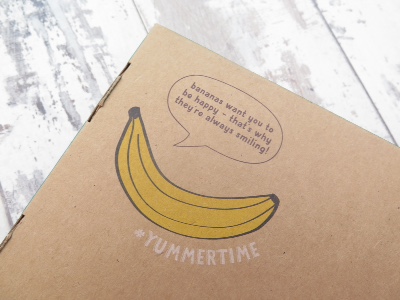 bananas want you to
be happy - that's why
they're always smiling!
#YUMMERTIME